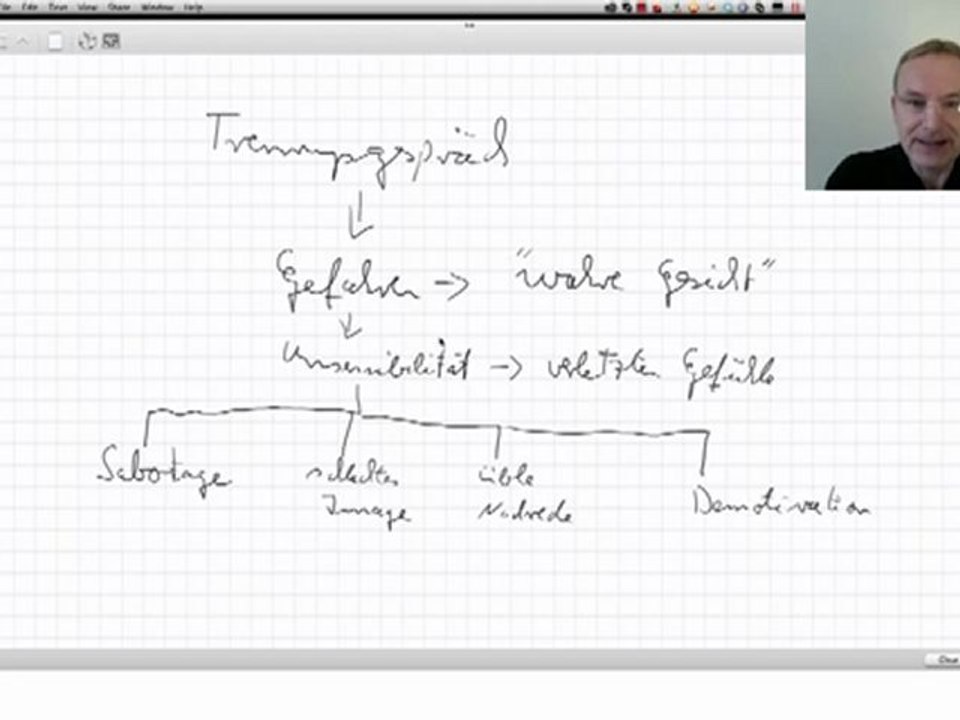 File Edit Text View Share Window Help
Trennungsgespräch
Gefahren -> "wahre Gesicht"
Unsensibilität -> verletzte Gefühle
Sabotage schlechtes üble Demotivation
Image Nachrede
Clear